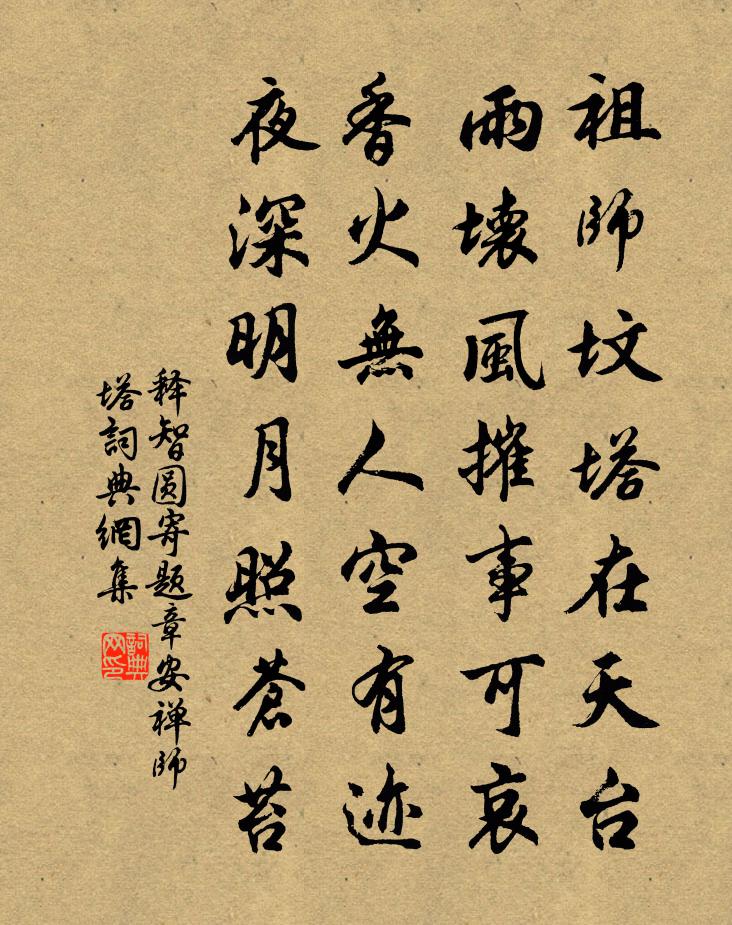 祖師坟塔在天台
雨壊風摧事可哀
香火無人空有迹
夜深明月照蒼苔
释智圓寄题章安禅師
塔詞典網集
詞典网印